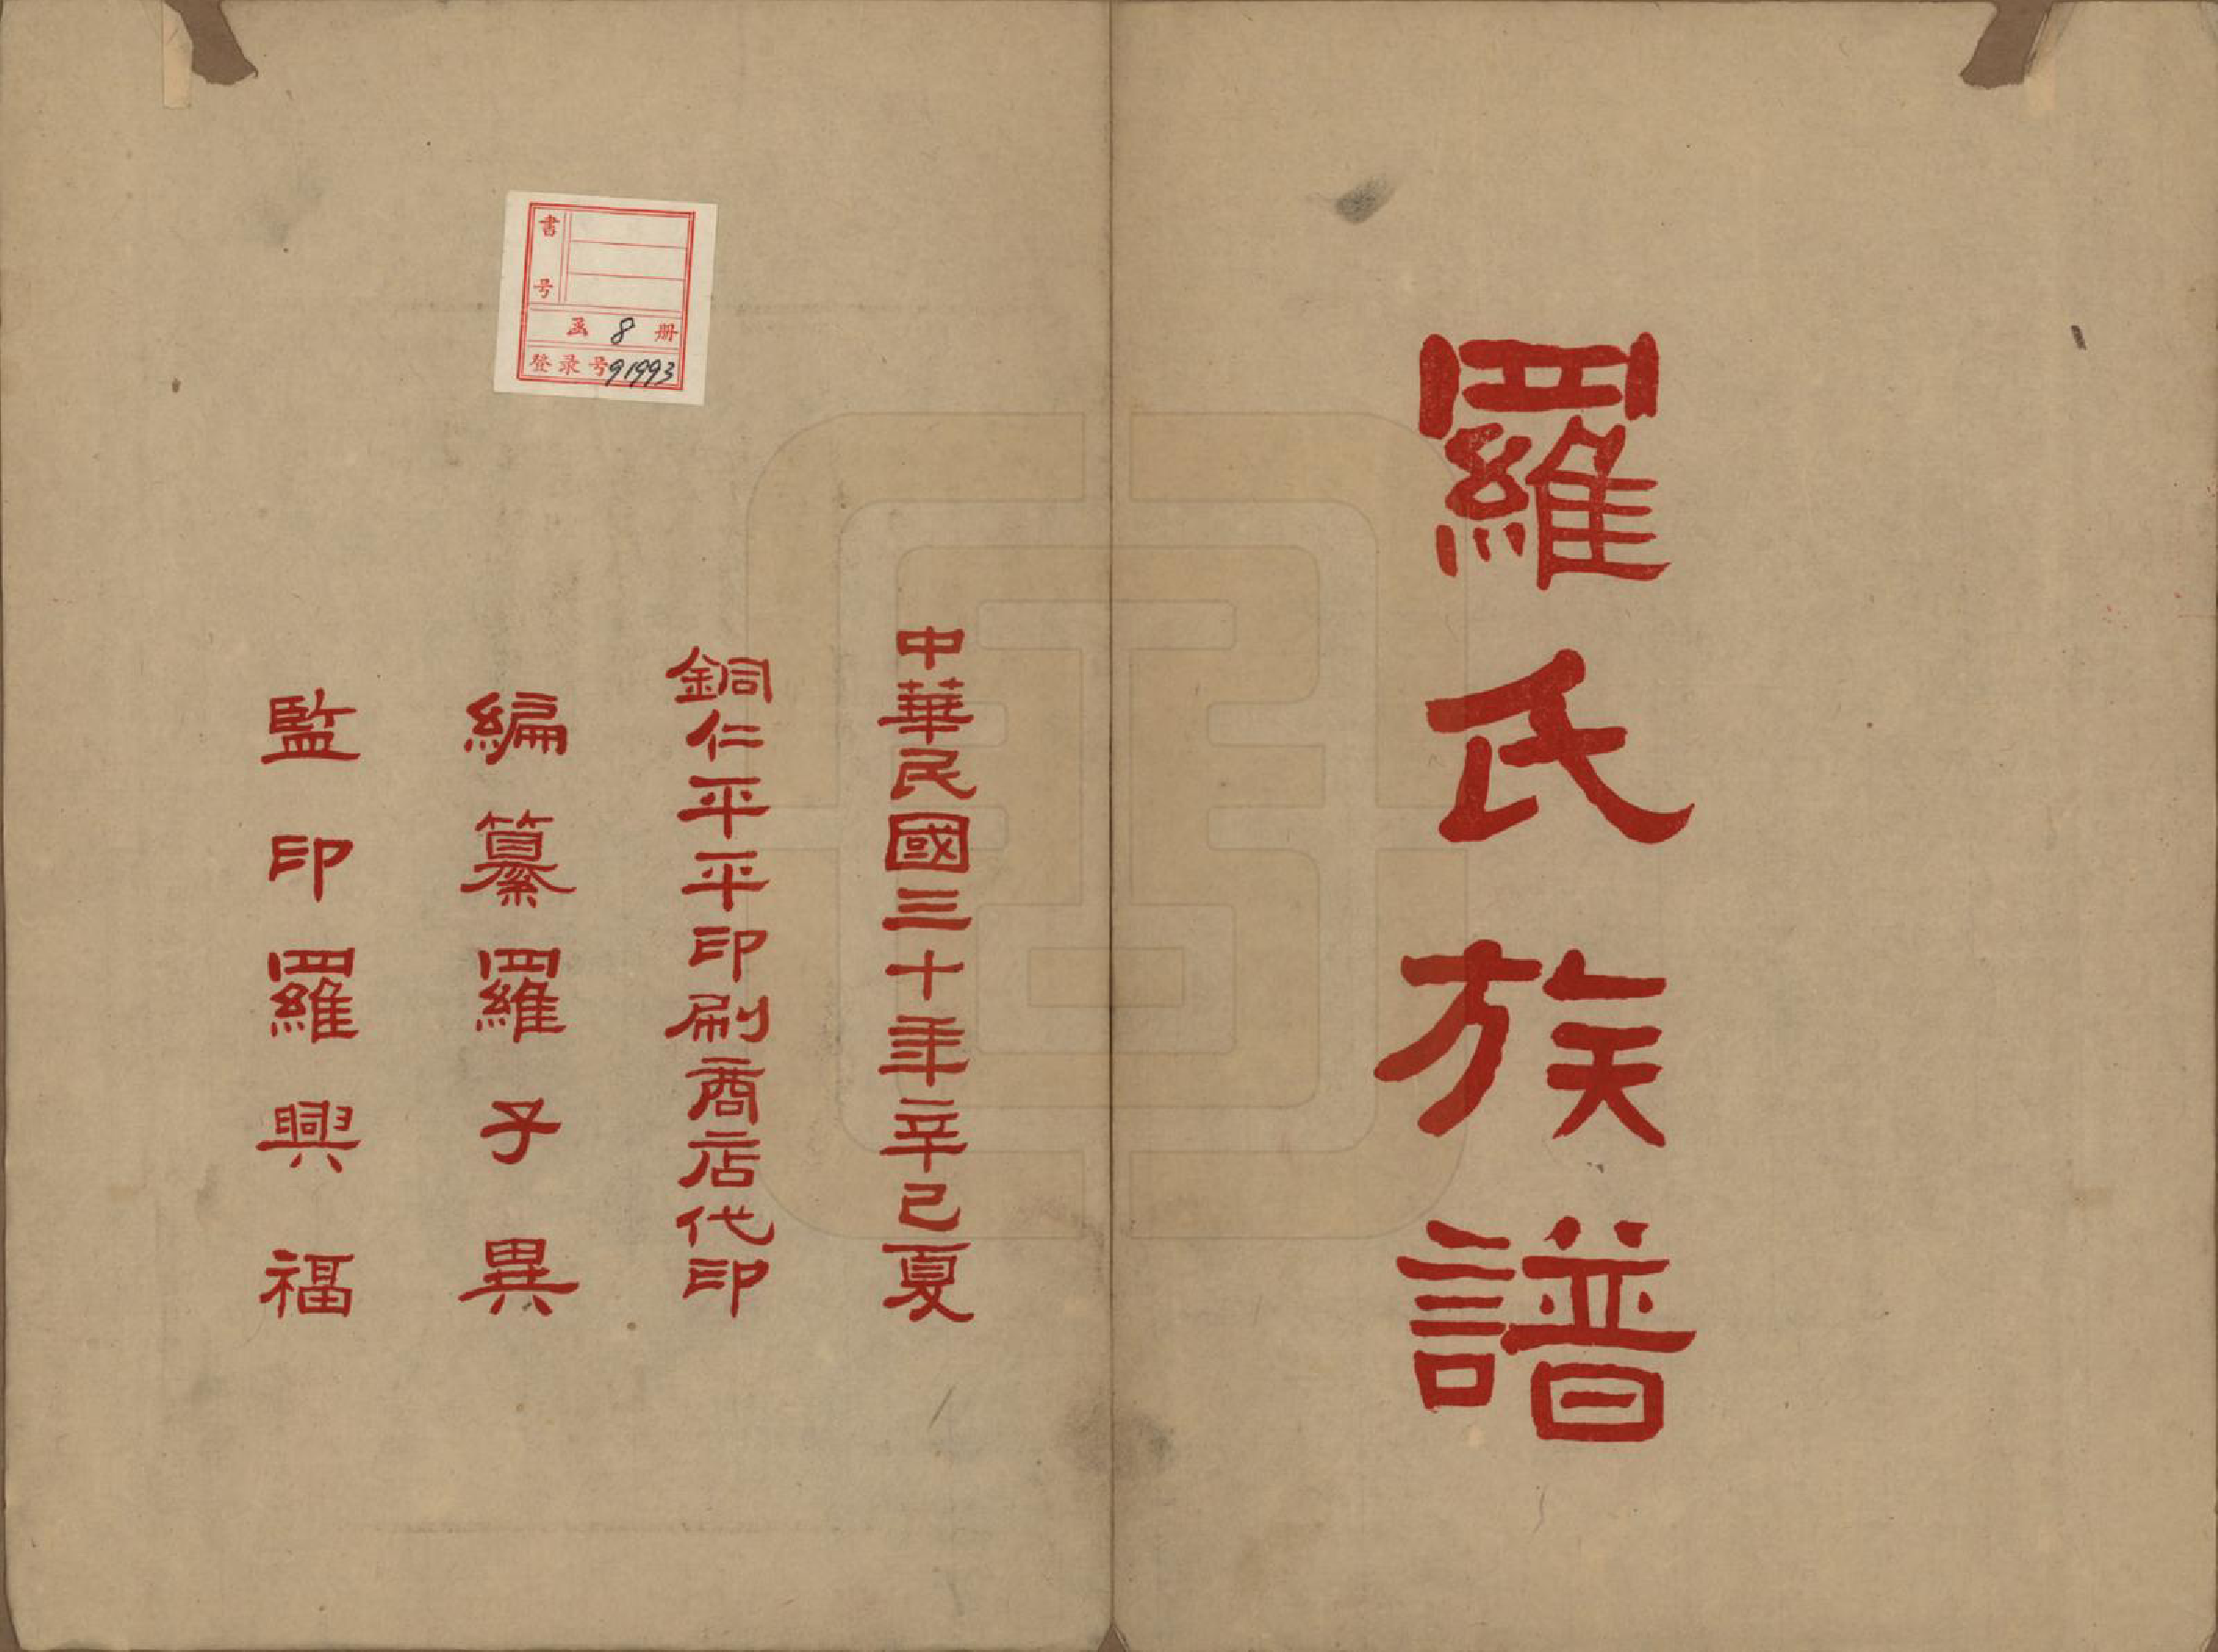 羅氏族譜
中華民國三十年辛巳夏
銅仁平平印刷商店代印
編纂羅子異
監印羅興福
書号
函 8 册
登录号91993